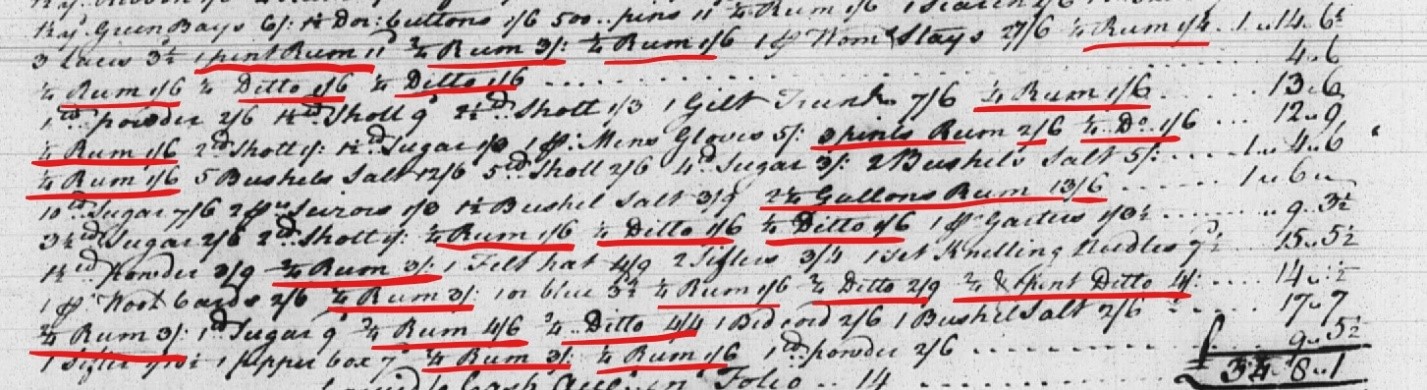 1½ yd Green Bays 6/: 1½ Doz: buttons 1/6 500.. pins 11d ¼ Rum 1/6 1
3 Laces 3½ 1 pint Rum 11d 2/4 Rum 3/: ¼ Rum 1/6 1 pr Wom Stays 27/6 ¼ Rum 1/4 . 1..14..6½
¼ Rum 1/6 ¼ Ditto 1/6 ¼ Ditto 1/6 . . . . . . . . . . . . 4..6
1 lb powder 2/6 1½ lb Shott 9d 2½ lb Shott 1/3 1 Gilt Trunk 7/6 ¼ Rum 1/6 . . . . 13..6
¼ Rum 1/6 2 lb Shott 1/: 1½ lb Sugar 1/ 1 pr: Mens Gloves 5/: 3 pints Rum 2/6 ¼ Do. 1/6 . . . 12..9
¼ Rum 1/6 5 Bushels Salt 12/6 5 lb Shott 2/6 4 lb Sugar 3/: 2 Bushels Salt 5/: . . . . 1..4..6
10 lb Sugar 7/6 2 prs Scizors 1/3 1½ Bushel Salt 3/9 2¼ Gallons Rum 13/6 . . . . . . 1..6..
3½ lb Sugar 2/6 2 lb Shott 1/: ¼ Rum 1/6 ¼ Ditto 1/6 ¼ Ditto 1/6 1 pr Garters 1/3½ . . . . . . ..9..3½
1½ lb Powder 3/9 2/4 Rum 3/: 1 Felt hat 4/9 2 Sifters 3/4 1 Set Knitting Needles 7½ 15..5½
1 pr Wool Cards 2/6 2/4 Rum 3/: 1 oz blue 3½ ¼ Rum 1/6 2/4 Ditto 2/9 2/4 & 1 pint Ditto 4/: . . . 14..:½
2/4 Rum 3/: 1 lb Sugar 9d 3/4 Rum 4/6 3/4 .. Ditto 4/4 1 Bed cord 2/6 1 Bushel Salt 2/6 17..7
1 Sifter 1/ 1 Pepper box 7d 2/4 Rum 3/: ¼ Rum 1/6 1 lb powder 2/6 . . . . . . . . . ..9..5½
Cash Folio .. 14 . . . . . . . . £34..8..1